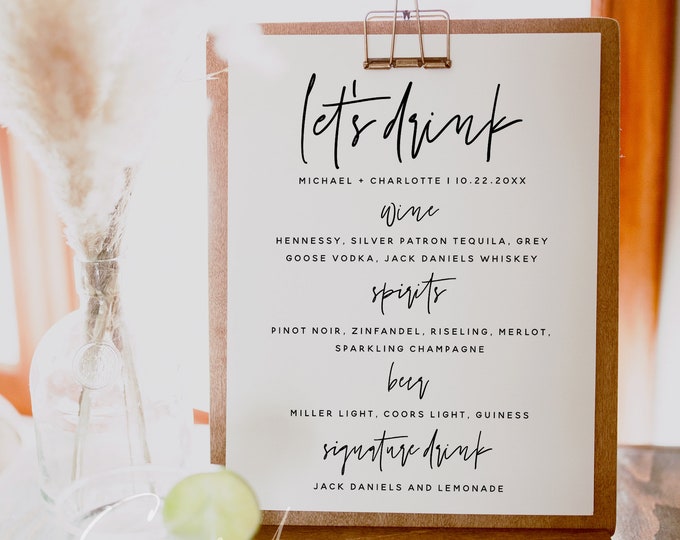 let's drink
MICHAEL + CHARLOTTE | 10.22.20XX
wine
HENNESSY, SILVER PATRON TEQUILA, GREY
GOOSE VODKA, JACK DANIELS WHISKEY
spirits
PINOT NOIR, ZINFANDEL, RISELING, MERLOT,
SPARKLING CHAMPAGNE
beer
MILLER LIGHT, COORS LIGHT, GUINESS
signature drink
JACK DANIELS AND LEMONADE